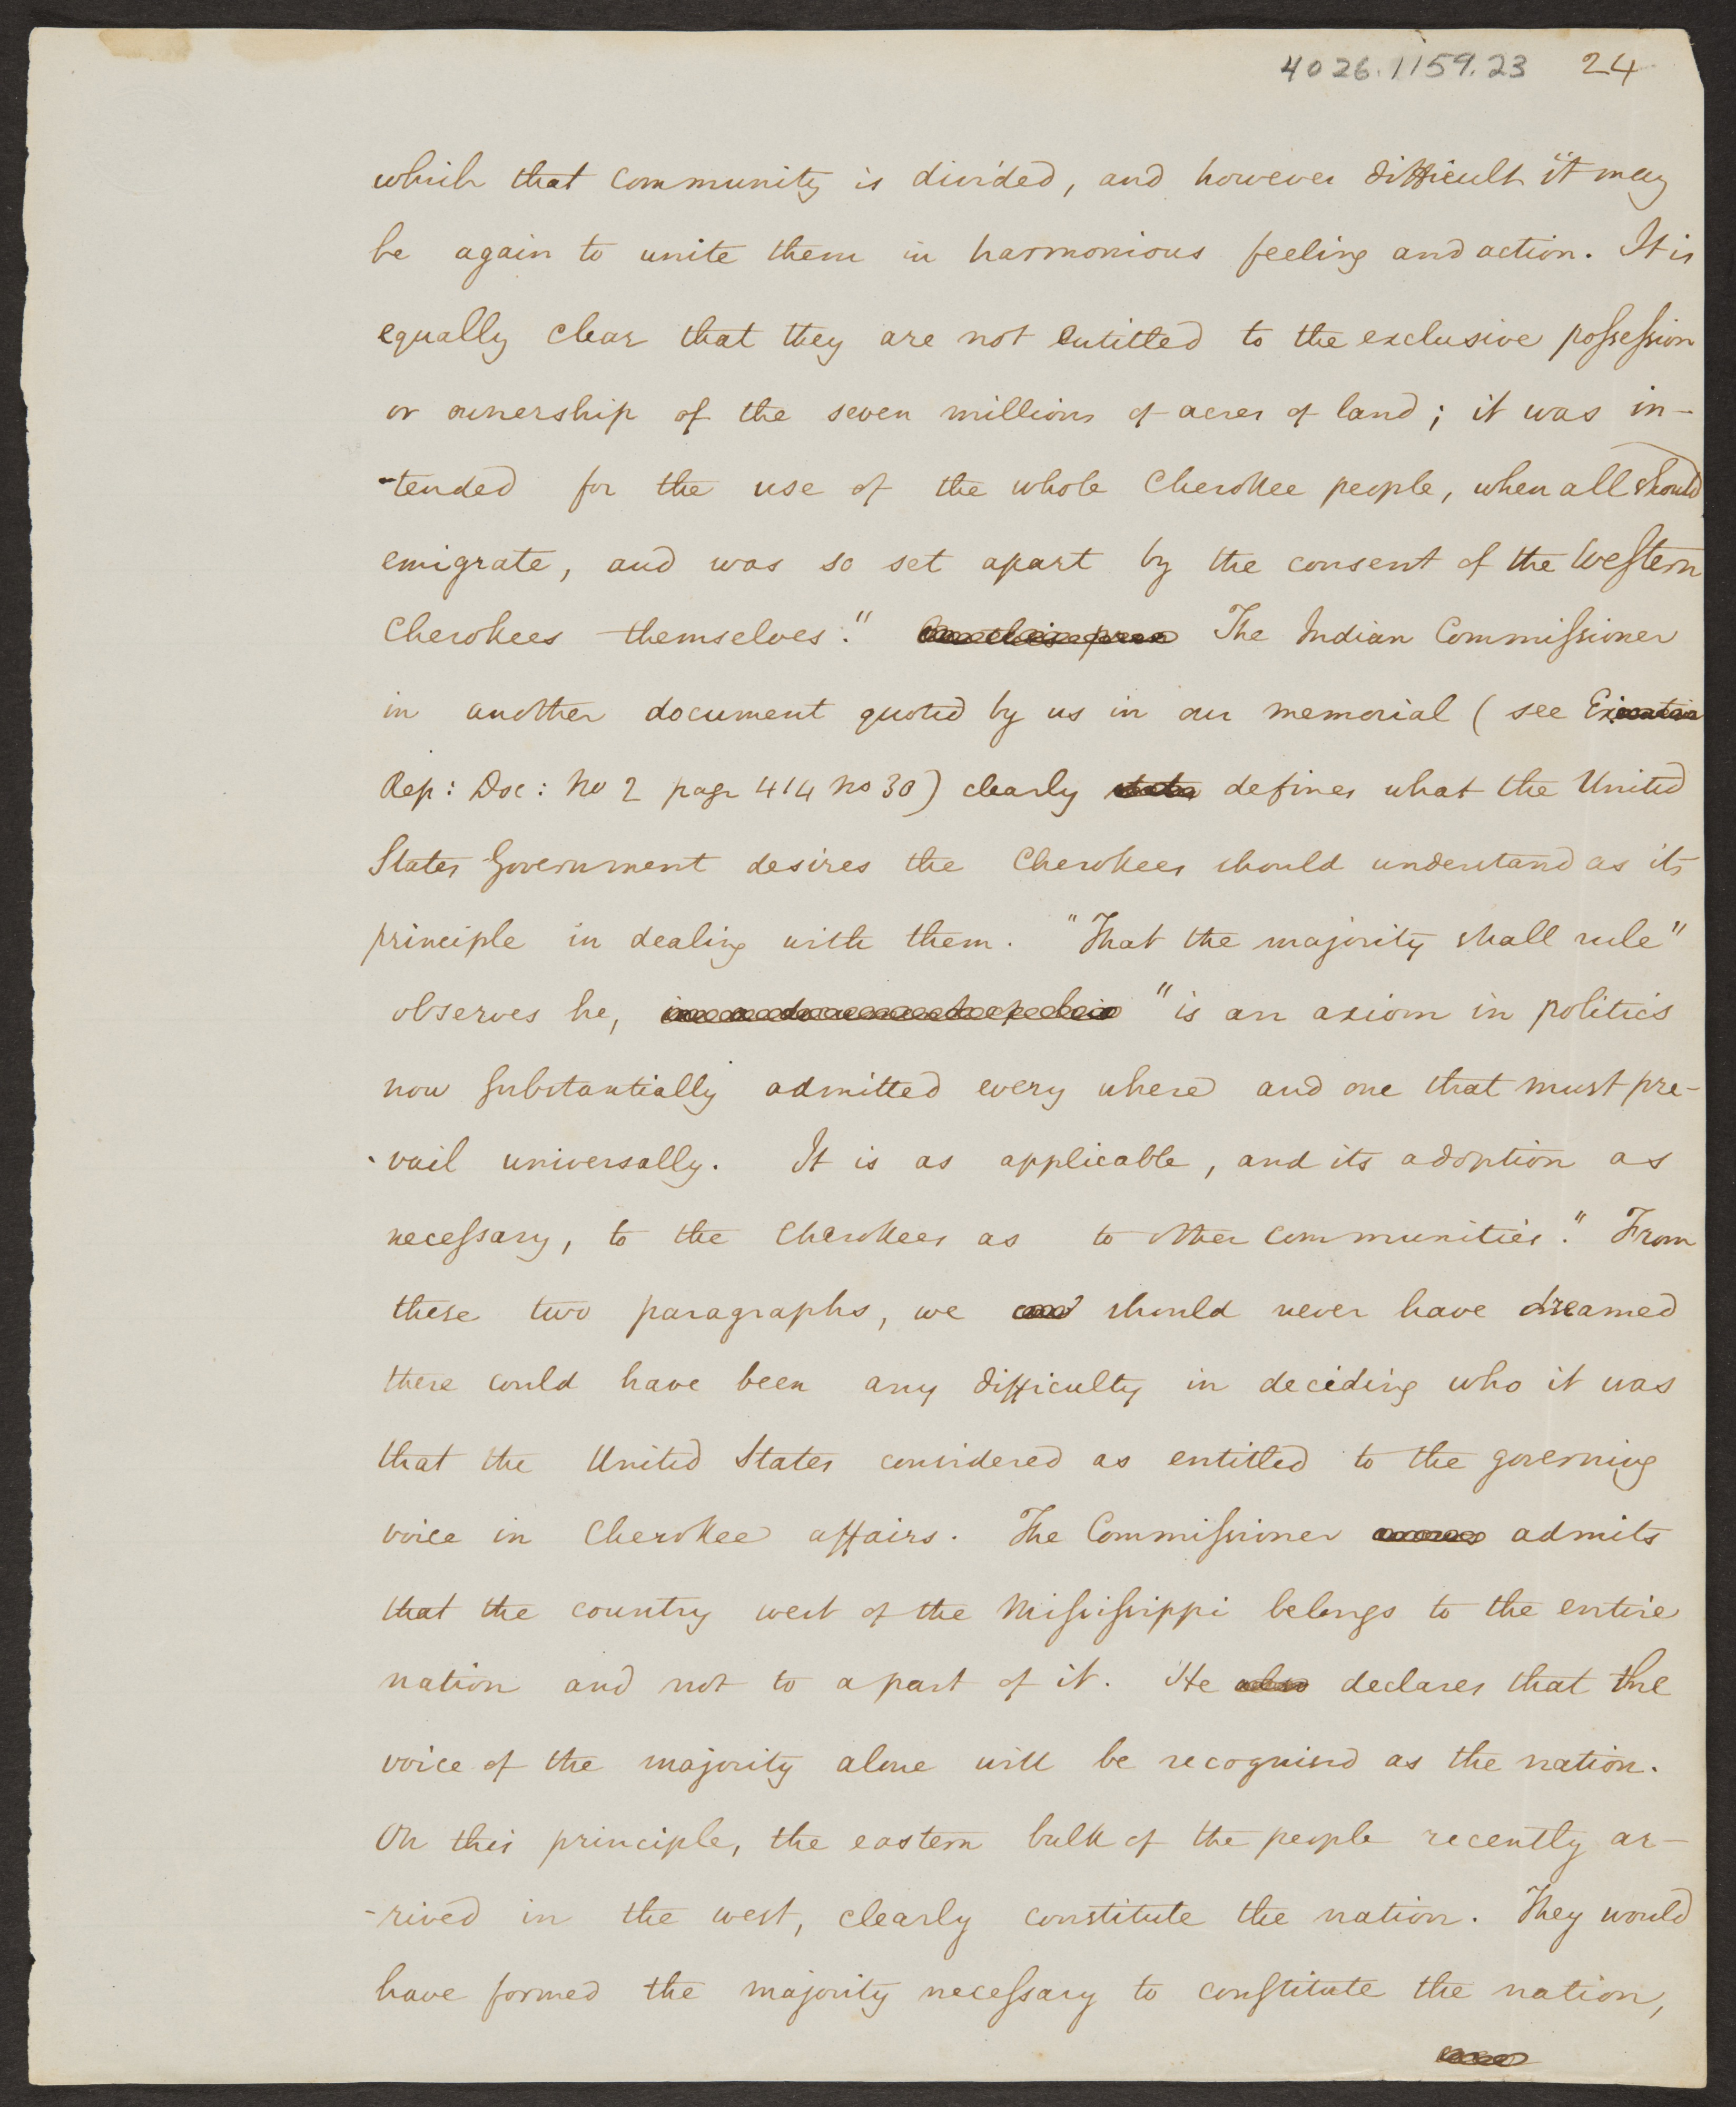 4026.1159.23 24
which that community is divided, and however difficult it may
be again to unite them in harmonious feeling and action. It is
equally clear that they are not entitled to the exclusive possession
or ownership of the seven millions of acres of land; it was in-
-tended for the use of the whole Cherokee people, when all should
emigrate, and was so set apart by the consent of the Western
Cherokees themselves." The Indian Commissioner
in another document quoted by us in our memorial (see Ex
Rep: Doc: No 2 page 414 no 30) clearly defines what the United
States Government desires the Cherokees should understand as its
principle in dealing with them. "That the majority shall rule"
observes he, "is an axiom in politics
now substantially admitted every where and one that must pre-
-vail universally. It is as applicable, and its adoption as
necessary, to the Cherokees as to other communities." From
these two paragraphs, we should never have dreamed
there could have been any difficulty in deciding who it was
that the United States considered as entitled to the governing
voice in Cherokee affairs. The Commissioner admits
that the country west of the Mississippi belongs to the entire
nation and not to a part of it. He declares that the
voice of the majority alone will be recognised as the nation.
On this principle, the eastern bulk of the people recently ar-
-rived in the west, clearly constitute the nation. They would
have formed the majority necessary to constitute the nation,